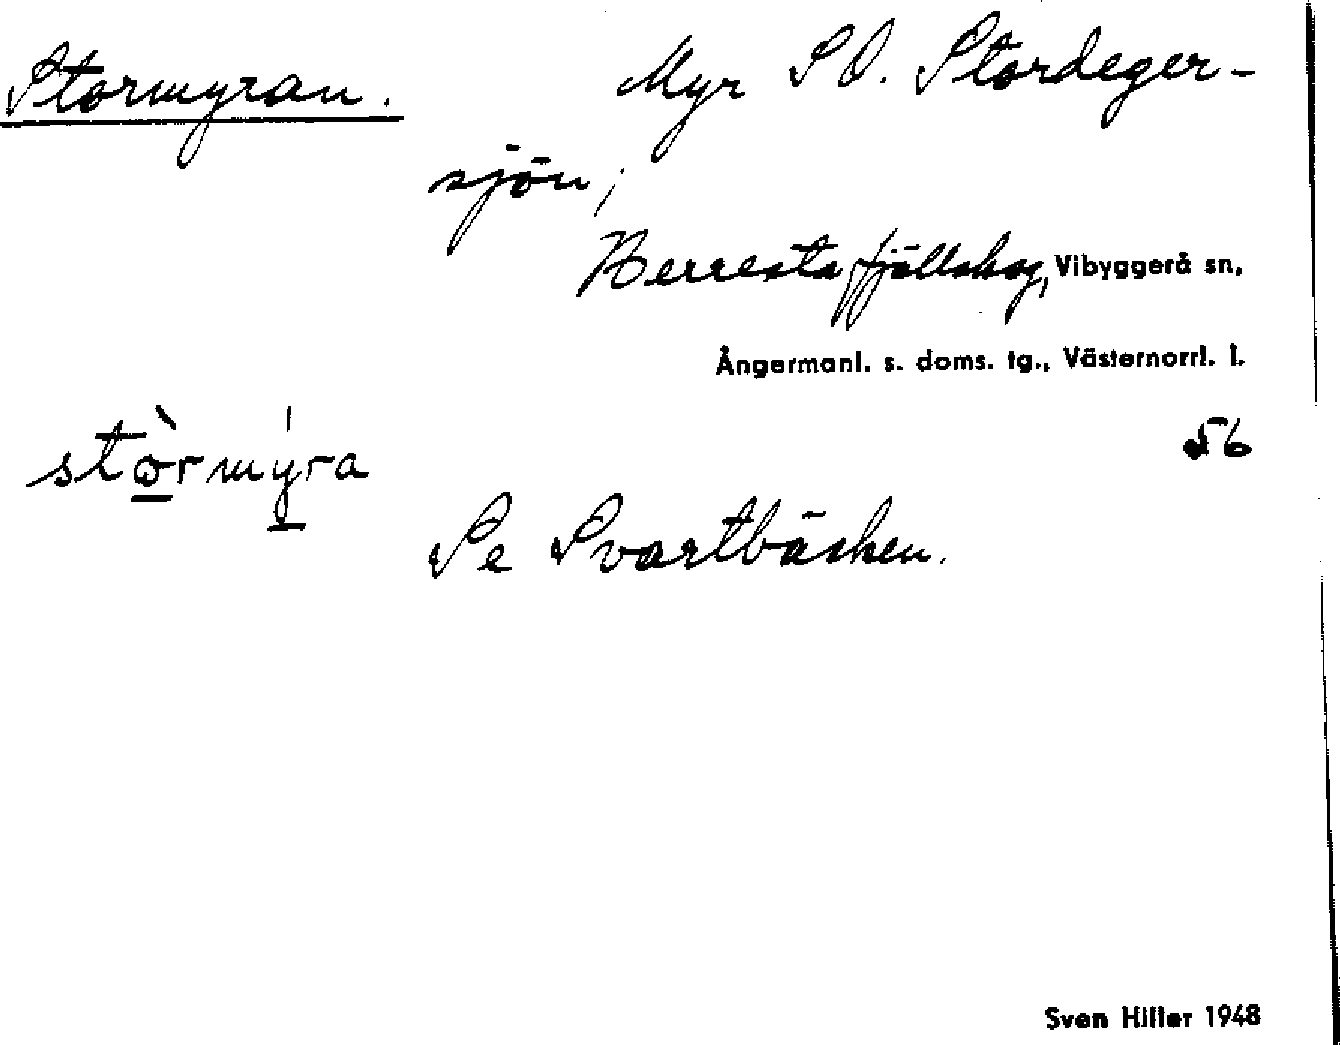 Stormyran. Myr SO. Stordeger-
sjön;
Herresta fjällskog, Vibyggerå sn,
Ångermanl. s. doms. tg., Västernorrl. l.
stòrmýra 56
Se Svartbäcken.
Sven Hiller 1948